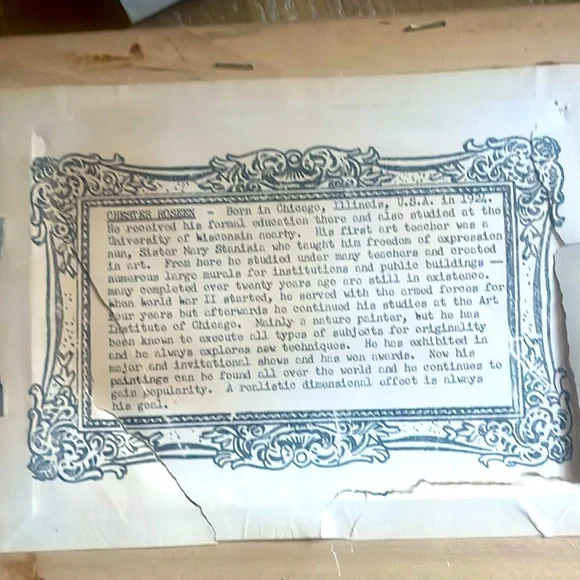 CHESTER ROSEEN - Born in Chicago, Illinois, U.S.A. in 1924.
He received his formal education there and also studied at the
University of Wisconsin nearby. His first art teacher was a
nun, Sister Mary Stanisia who taught him freedom of expression
in art. From here he studied under many teachers and erected
numerous large murals for institutions and public buildings —
many completed over twenty years ago are still in existence.
When World War II started, he served with the armed forces for
four years but afterwards he continued his studies at the Art
Institute of Chicago. Mainly a nature painter, but he has
been known to execute all types of subjects for originality
and he always explores new techniques. He has exhibited in
major and invitational shows and has won awards. Now his
paintings can be found all over the world and he continues to
gain popularity. A realistic dimensional effect is always
his goal.